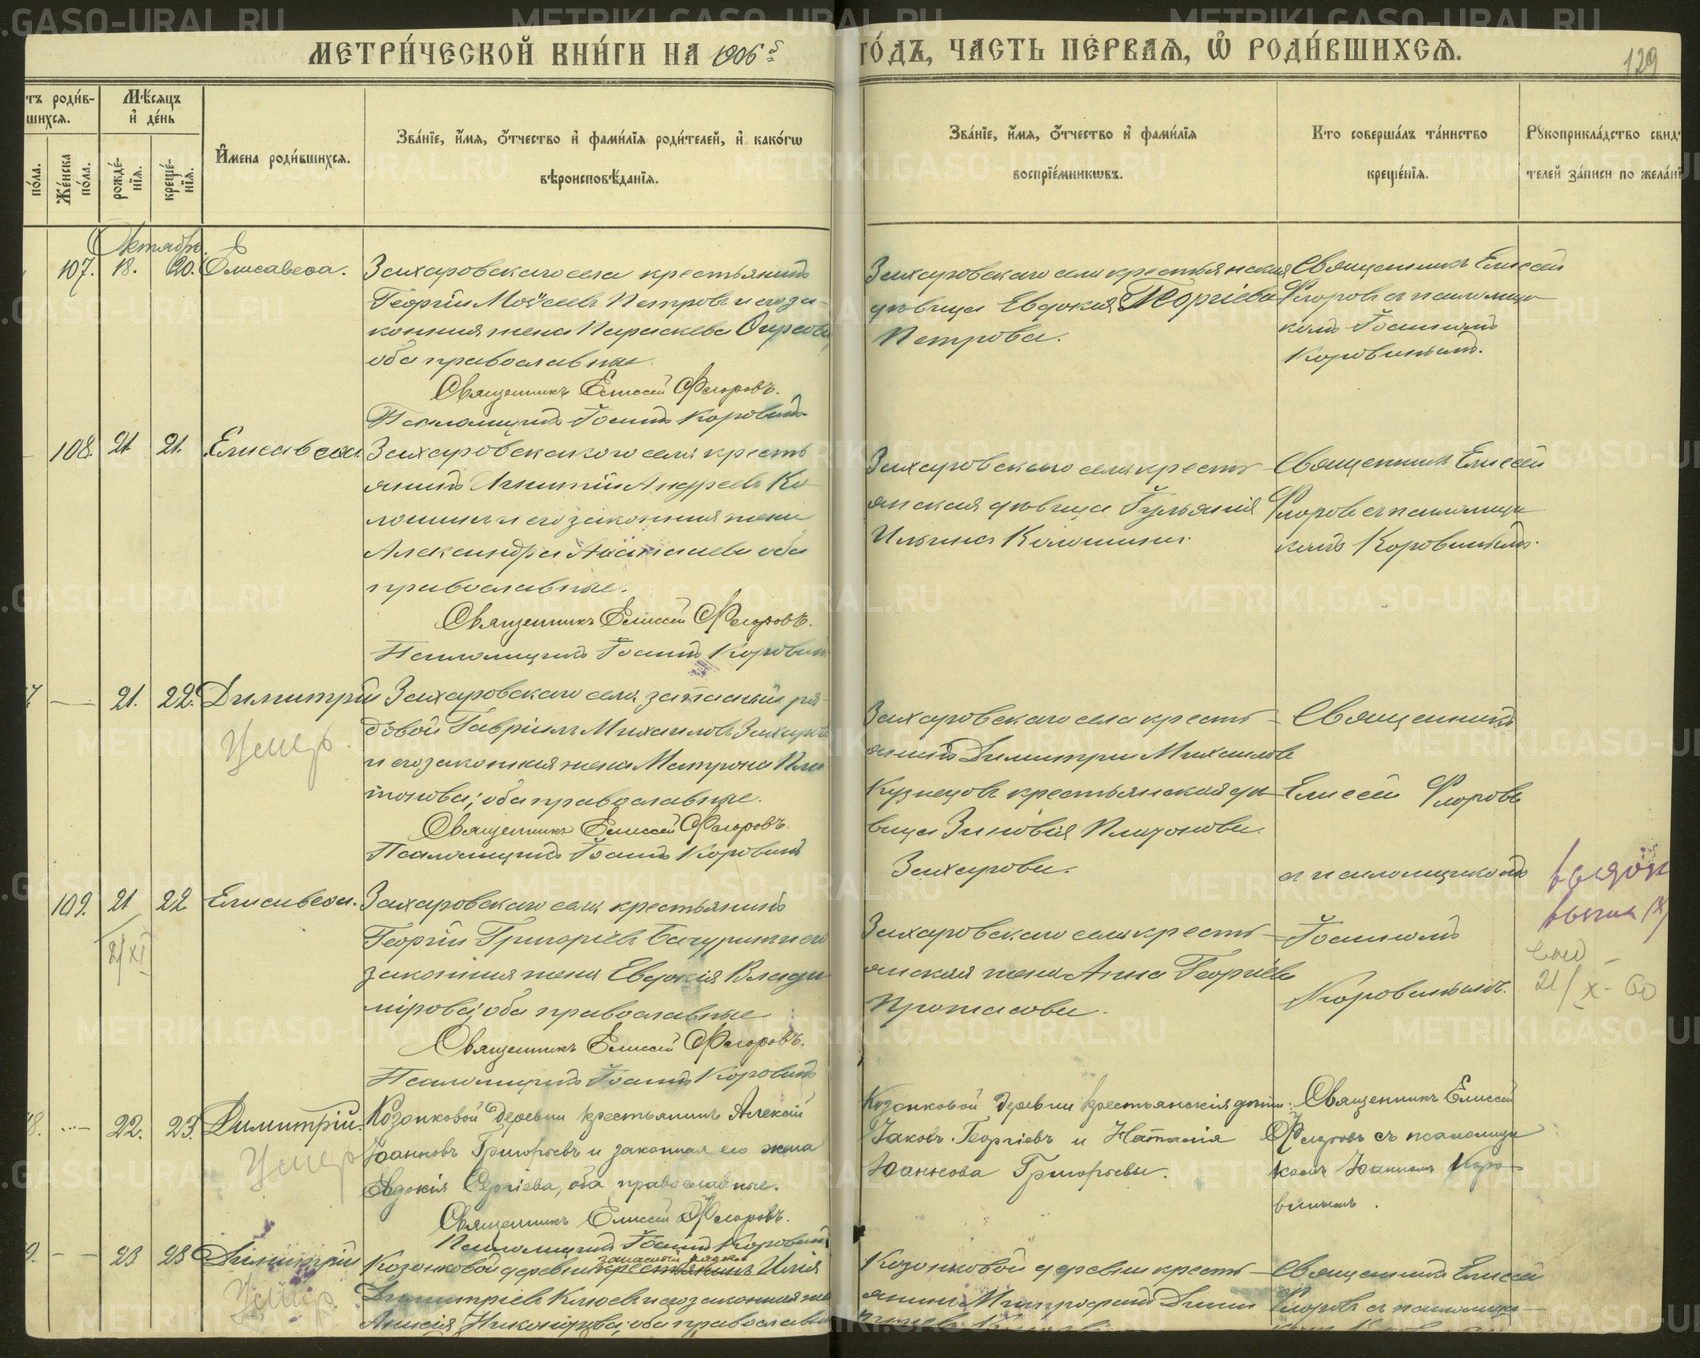 МЕТРИ́ЧЕСКОЙ КНИ́ГИ НА 1906 ГО́ДЪ, ЧАСТЬ ПЕ́РВАЯ, Ѽ РОДИ́ВШИХСЯ.
129
тъ роди́в-
шихся.
Мѣ́сяцъ
и де́нь
по́ла.
Же́нска
по́ла.
рожде́-
нїя.
креще́-
нїя.
И́мена роди́вшихся.
Зва́нїе, и́мя, ѻ҆́тчество и фами́лїя роди́телей, и како́гѡ
вѣроисповѣ́данїя.
Зва́нїе, и́мя, ѻ҆́тчество и фами́лїя
воспрїе́мникѡвъ.
Кто соверша́лъ та́инство
креще́нїя.
Рꙋкоприкла́дство свид
телей за́писи по жела́нї
Октябрь.
107. 18. 20. Елисавеѳа.
Захаровскаго села крестьянинъ
Георгій Моѵсеевъ Петровъ и его за-
конная жена Параскева
оба православные.
Священникъ Елисей Флоровъ.
Псаломщикъ Іоаннъ Коровинъ
Захаровскаго села крестьянская
дѣвица Евдокия Георгіева
Петрова.
Священникъ Елисей
Флоровъ съ псаломщи-
комъ Іоанномъ
Коровинымъ.
108. 21 21. Елисавеѳа.
Захаровскаго села кресть-
янинъ Игнатій Андреевъ Ко-
лошинъ и его законная жена
Александра оба
православные.
Священникъ Елисей Флоровъ.
Псаломщикъ Іоаннъ Коровинъ
Захаровскаго села кресть-
янская дѣвица Іуліанія
Ильина Колошина.
Священникъ Елисей
Флоровъ съ псаломщи-
комъ Коровинымъ.
7 — 21. 22. Димитрій
Умеръ.
Захаровскаго села запасный ря-
довой Гавріилъ Михаиловъ Захаровъ
и его законная жена Матрона Пла-
тонова, оба православные.
Священникъ Елисей Флоровъ.
Псаломщикъ Іоаннъ Коровинъ
Захаровскаго села кресть-
янинъ Димитрій Михаиловъ
Кузнецовъ крестьянская дѣ-
вица Зиновія Платонова
Захарова.
Священникъ
Елисей Флоровъ
съ псаломщикомъ
Іоанномъ
Коровинымъ.
109. 21 22 Елисавеѳа.
21/XI
Захаровскаго села крестьянинъ
Георгій Григоріевъ и его
законная жена Евдокія Влади-
мірова, оба православные
Священникъ Елисей Флоровъ.
Псаломщикъ Іоаннъ Коровинъ
Захаровскаго села кресть-
янская жена Анна Георгіева
Протасова.
21/X-60
8. — 22. 23. Димитрій.
Умеръ
Козонковой деревни крестьянинъ Алексій
Іоанновъ Григорьевъ и законная его жена
Евдокія Сергіева, оба православные.
Священникъ Елисей Флоровъ.
Псаломщикъ Іоаннъ Коровинъ
Козонковой деревни крестьянскія дѣти:
Іаковъ Георгіевъ и Наталія
Іоаннова Григорьевы.
Священникъ Елисей
Флоровъ съ псаломщи-
комъ Іоанномъ Коро-
винымъ.
9. — 23 23 Димитрій
Умеръ.
запасный рядов
Козонковой деревни крестьянинъ Илія
Димитріевъ Клюевъ и его законная же
Анисія Никонорова, оба православны
Козонковой деревни кресть-
янинъ Митрофанъ Дими
Священникъ Елисей
Флоровъ съ псаломщи-
METRIKI.GASO-URAL.RU